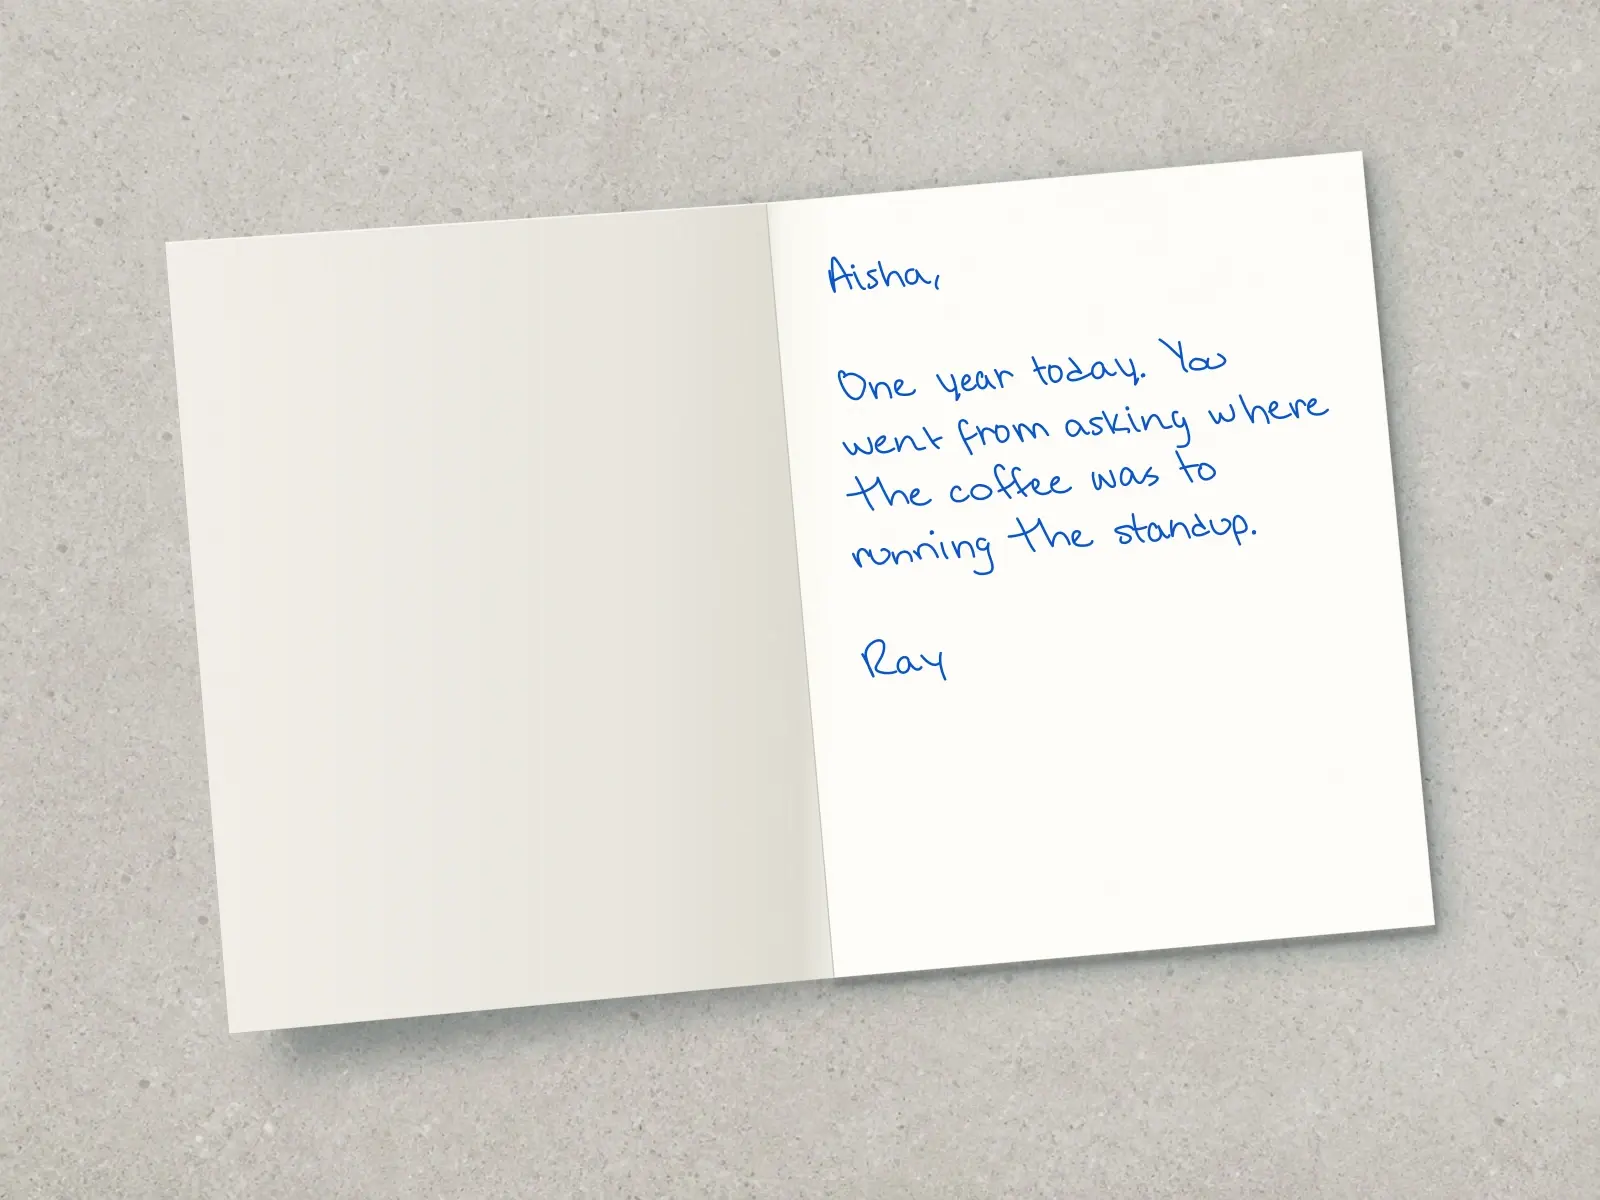 Aisha,
One year today. You
went from asking where
the coffee was to
running the standup.
Ray